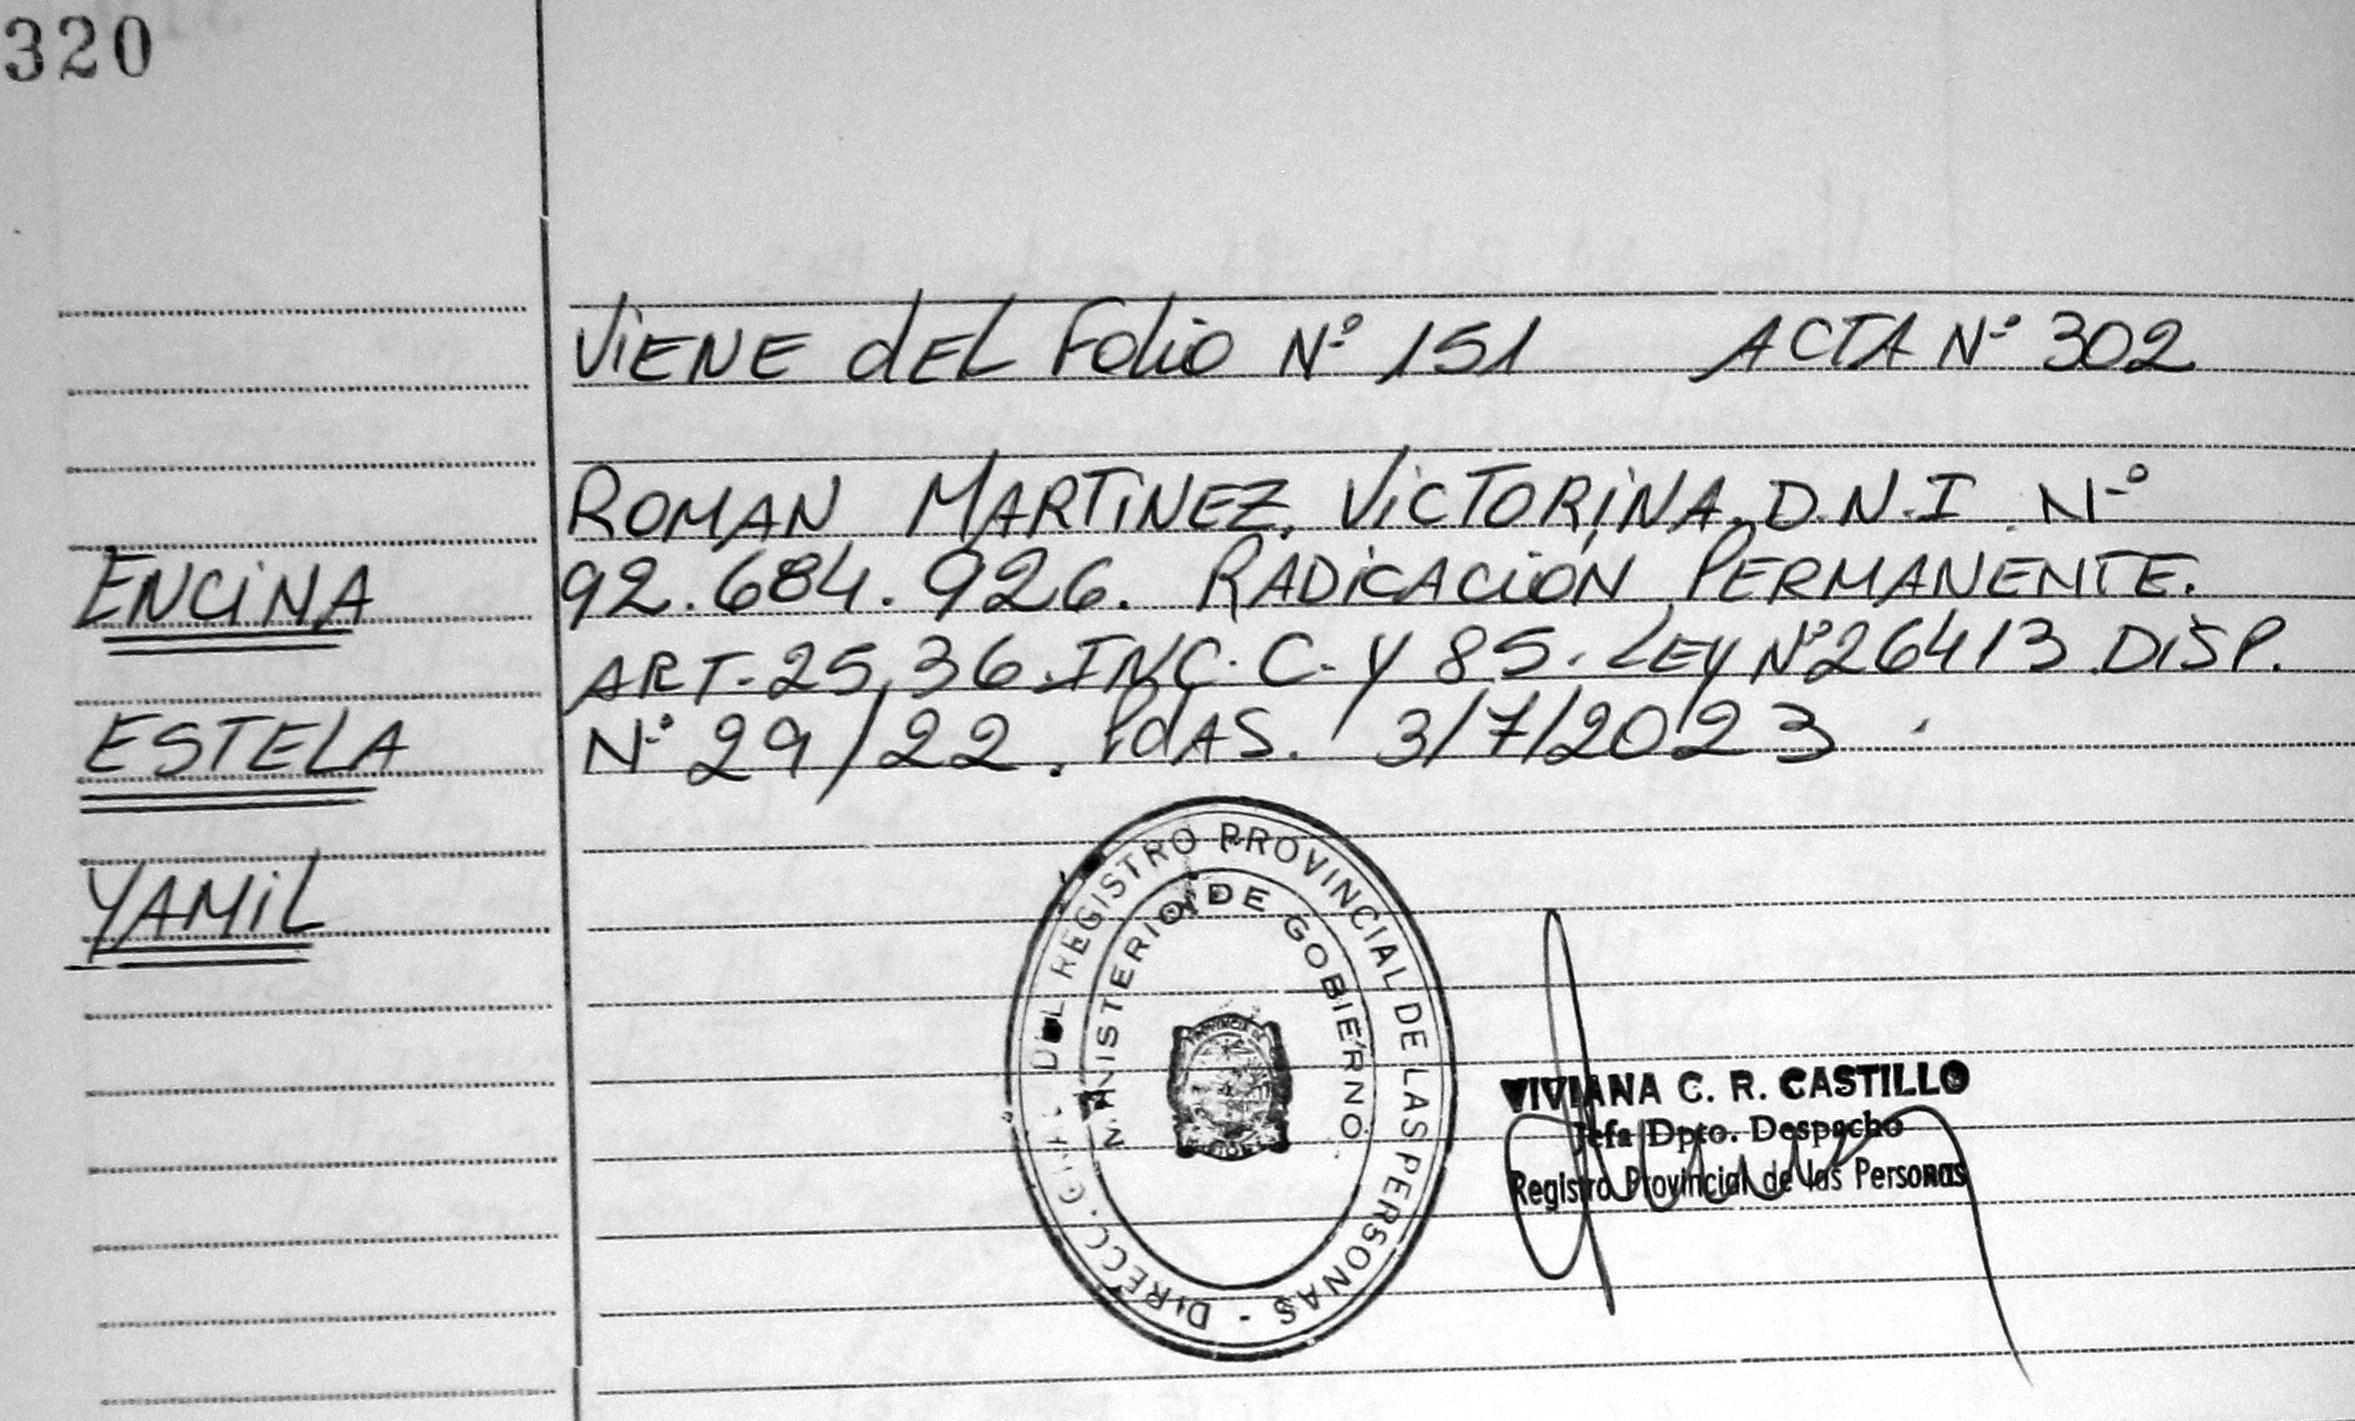 320
ViENE dEL Folio Nº 151 ACTA Nº 302
ROMAN MARTiNEZ, ViCTORiNA. D.N.I. Nº
ENCiNA
92.684.926. RADiCACiÓN PERMANENTE.
ART. 25, 36. INC. C. Y 85. LEY Nº 26413 DiSP.
ESTELA
Nº 29/22. PdAS. 3/7/2023.
YAMiL
DIRECC. GRAL. DEL REGISTRO PROVINCIAL DE LAS PERSONAS -
MINISTERIO DE GOBIERNO
VIVIANA C. R. CASTILLO
Jefa Dpto. Despacho
Registro Provincial de las Personas